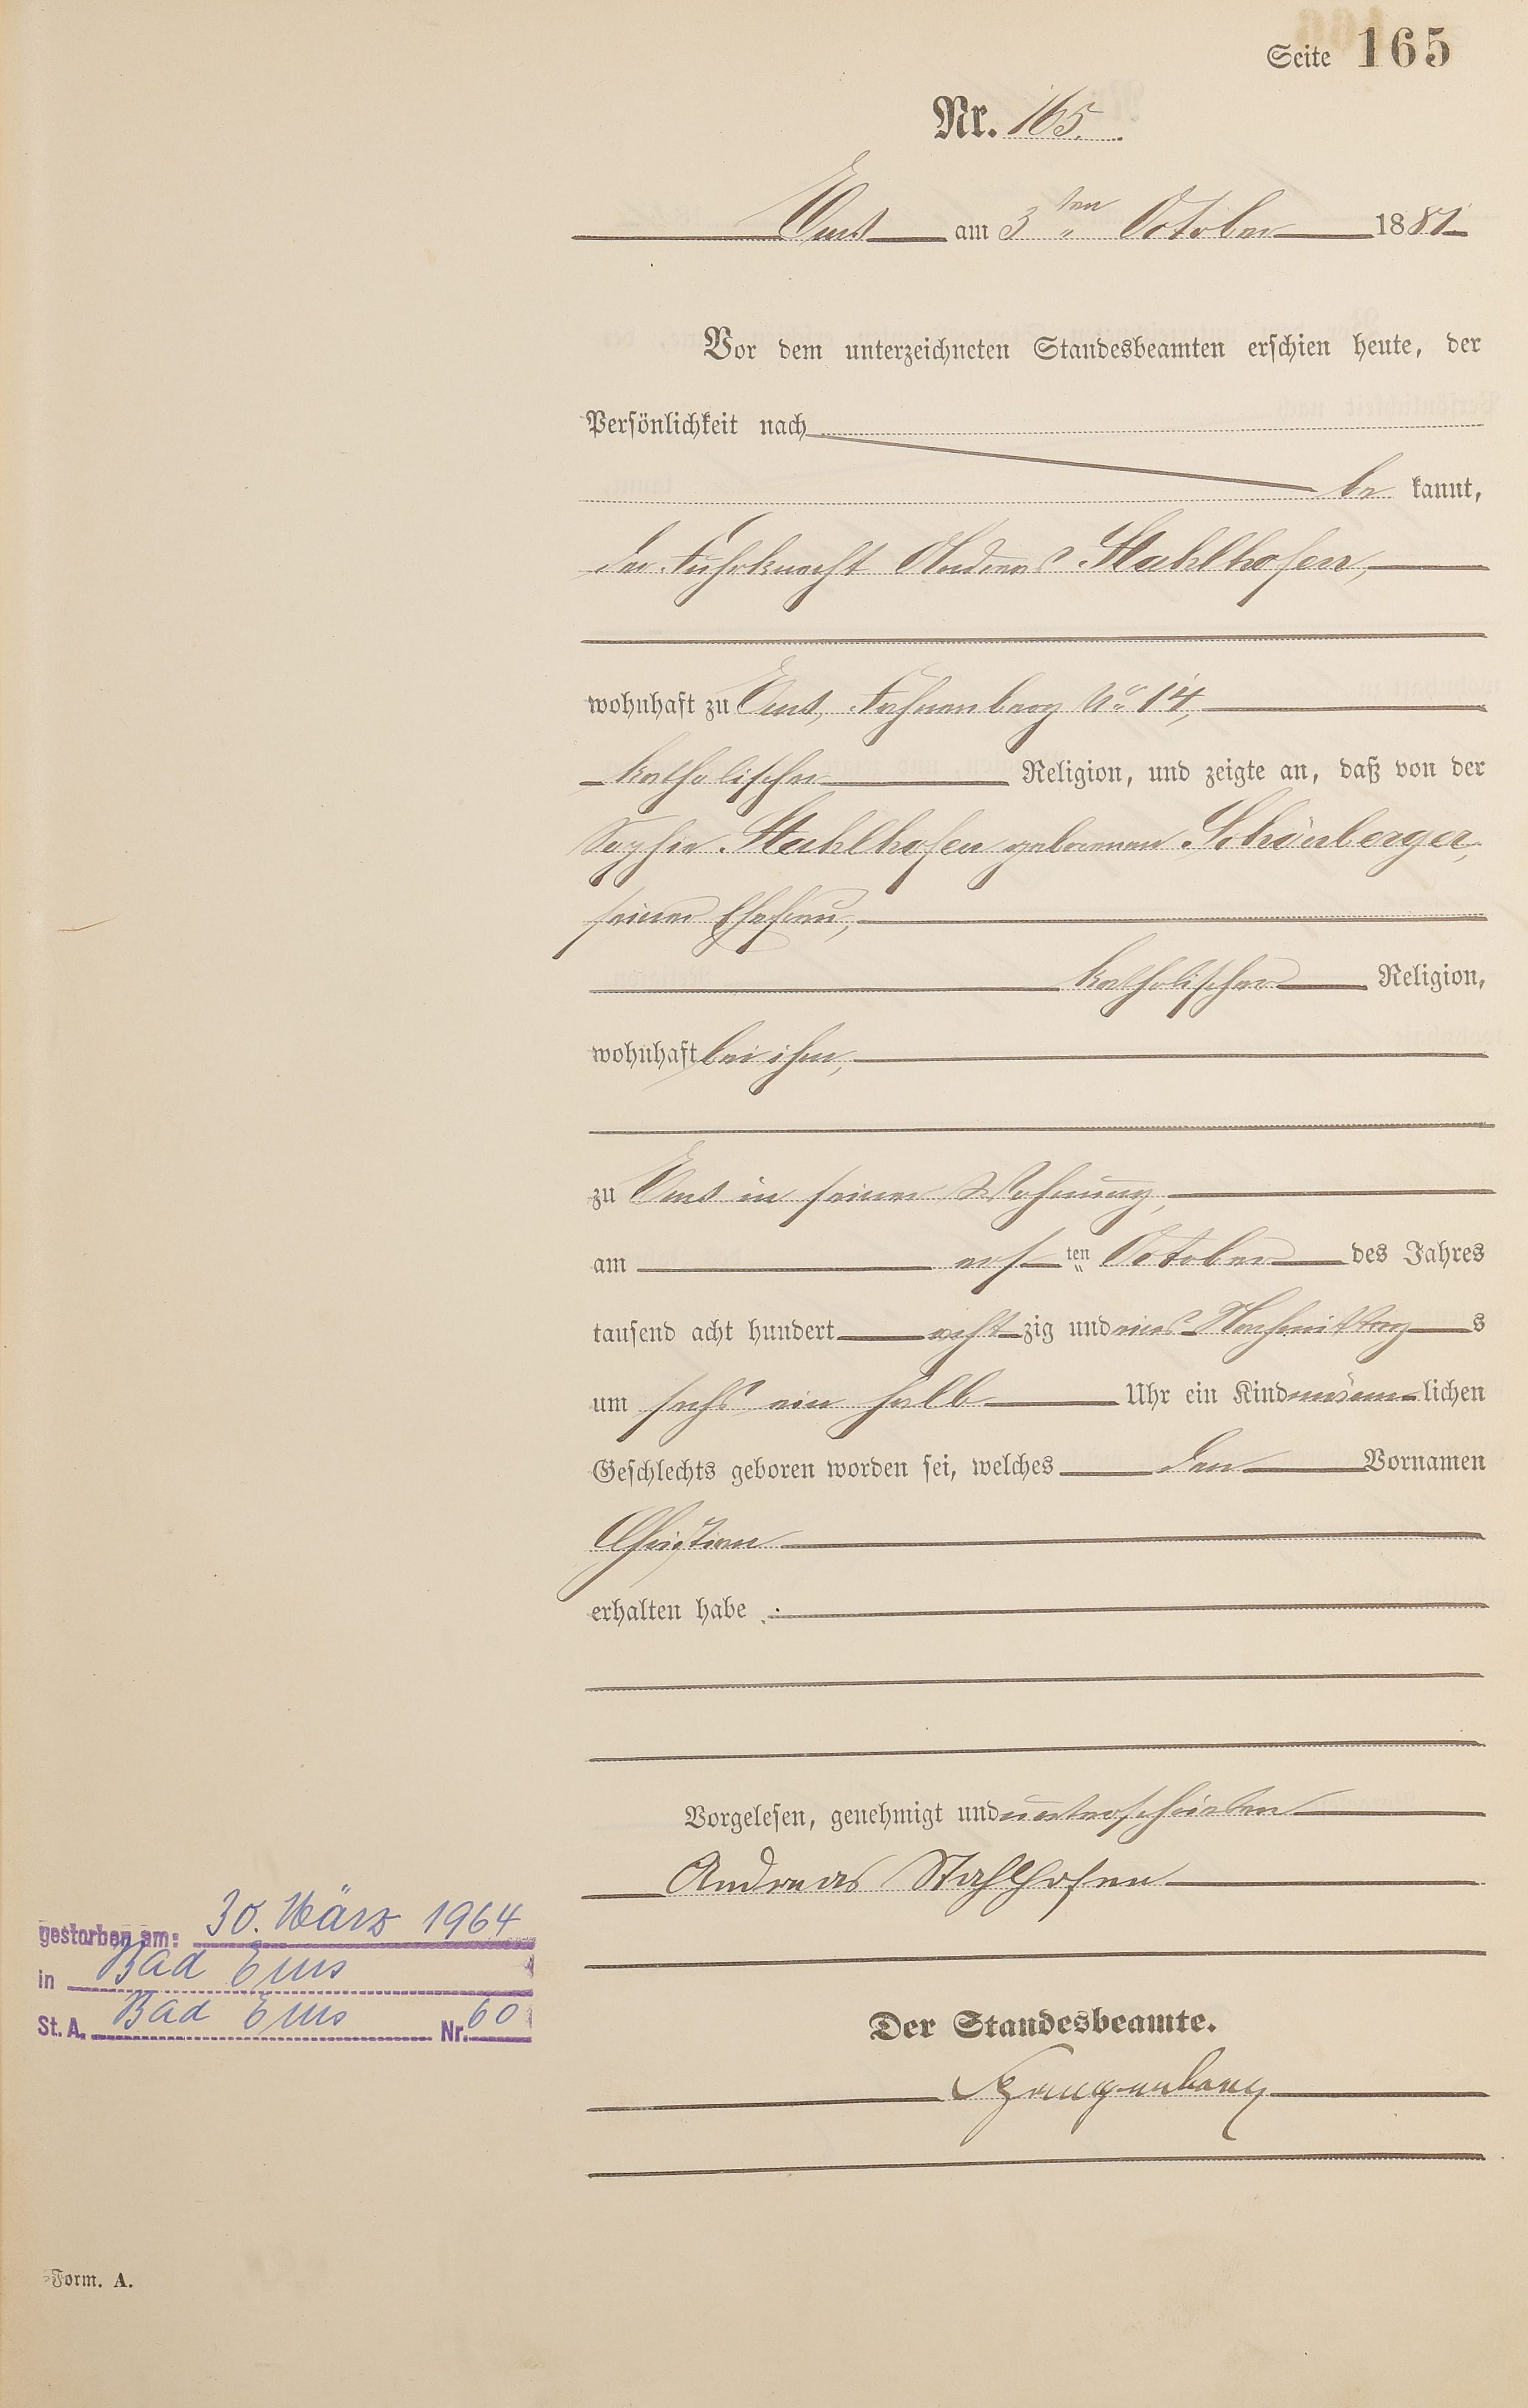 Seite 165
Nr. 165.
Ems am 3 ten October 1881
Vor dem unterzeichneten Standesbeamten erschien heute, der
Persönlichkeit nach
be kannt,
der Fuhrknecht Andreas Stahlhofen,
wohnhaft zu Ems, No 14,
katholischer Religion, und zeigte an, daß von der
Sophie Stahlhofen geborenen Schönberger,
seiner Ehefrau,
katholischer Religion,
wohnhaft bei ihm,
zu Ems in seiner Wohnung,
am ersten October des Jahres
tausend acht hundert achtzig und eins Nachmittags
um sechs ein halb Uhr ein Kind männlichen
Geschlechts geboren worden sei, welches den Vornamen
Christian
erhalten habe.
Vorgelesen, genehmigt und unterschrieben
Andreas Stahlhofen
gestorben am: 30. März 1964
in Bad Ems
St. A. Bad Ems Nr. 60
Der Standesbeamte.
Form. A.